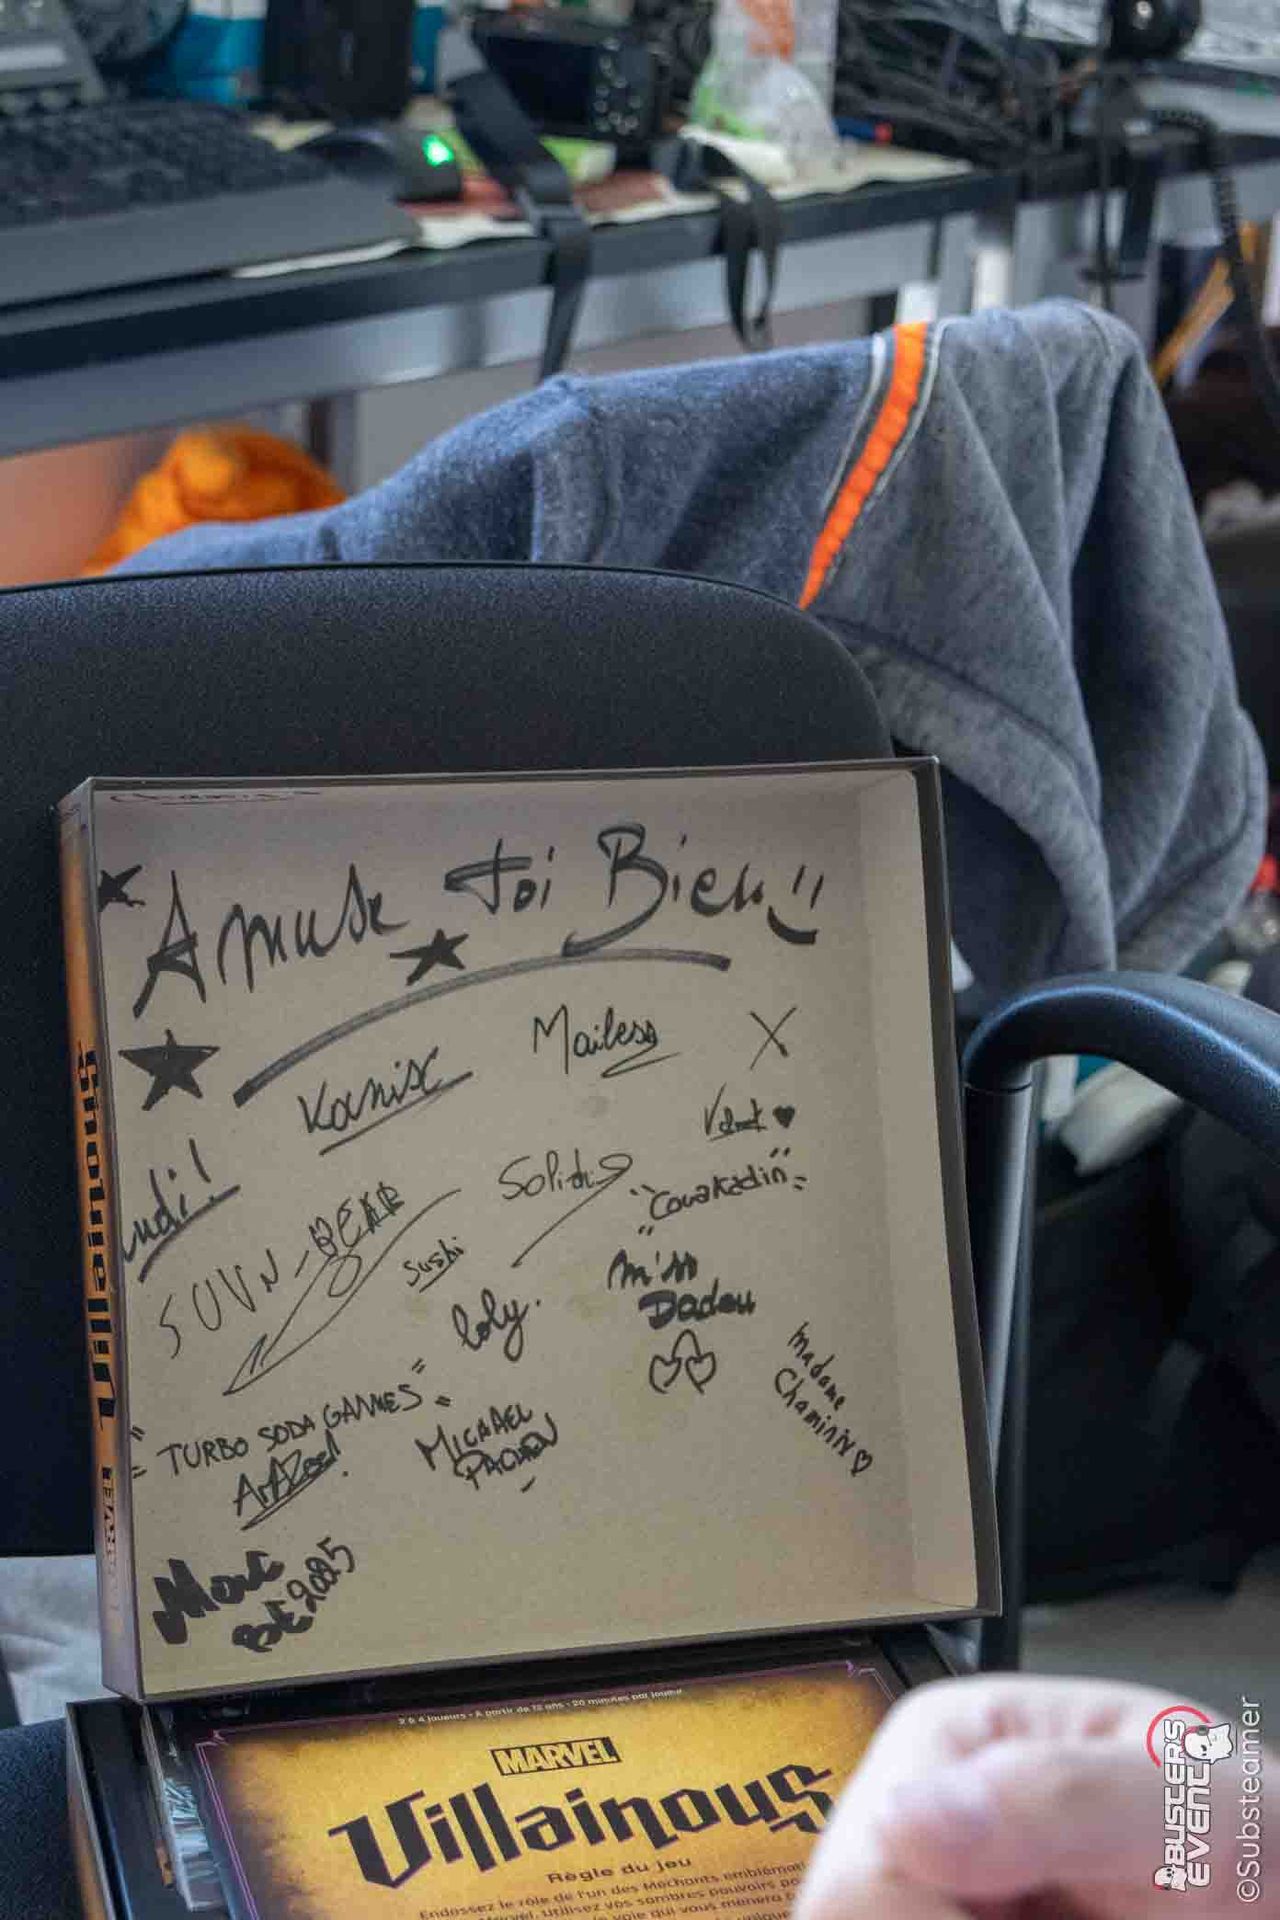 Amuse toi Bien !!
Mailess
X
Kanix
Velvet ♥
Solid
"Couakadin"
udi!
SUVN-BEAR
Sushi
Loly.
Miss
Dadou
Madame
Chaminix ♡
"TURBO SODA GAMES"
MICHAEL
Marc
BE2025
Villainous
2 à 4 joueurs - À partir de 12 ans - 20 minutes par joueur
MARVEL
Villainous
Règle du jeu
Endossez le rôle de l'un des Méchants
Marvel. Utilisez vos sombres pouvoirs
voie qui vous mènera
BUSTERS
EVENT
©Substeamer